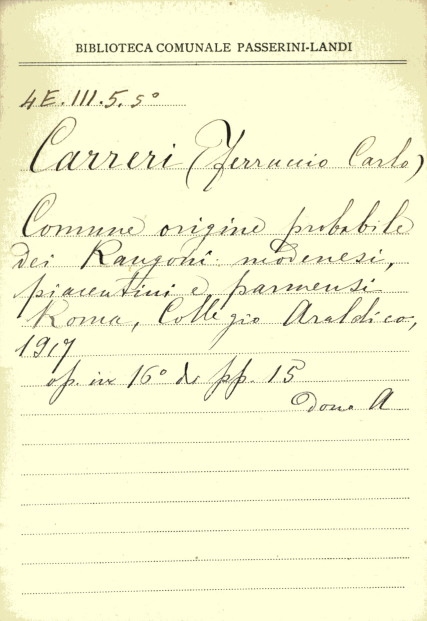 BIBLIOTECA COMUNALE PASSERINI-LANDI
4E.III.5.5°
Carreri (Ferruccio Carlo)
Comune origine probabile
dei Rangoni modenesi,
piacentini e parmensi
Roma, Collegio Araldico,
1917
op. in 16° di pp. 15
Dono A